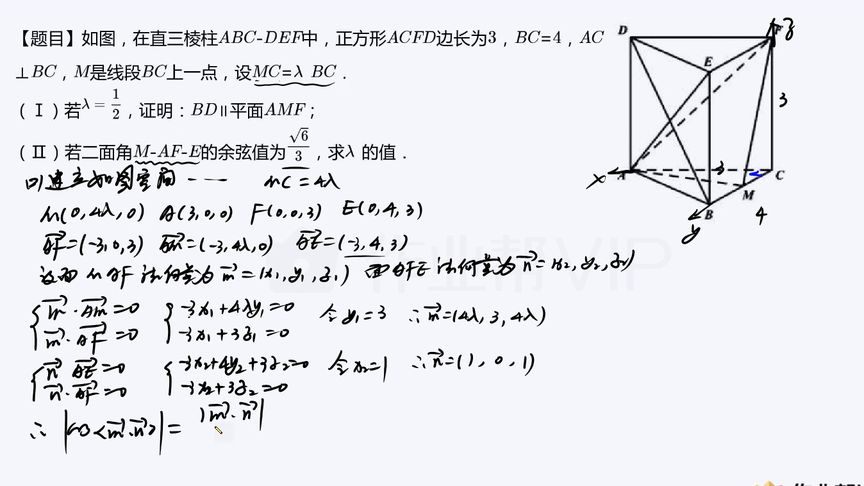 【题目】如图，在直三棱柱ABC-DEF中，正方形ACFD边长为3，BC=4，AC
⊥BC，M是线段BC上一点，设MC=λ BC．
（Ⅰ）若λ=1/2，证明：BD∥平面AMF；
（Ⅱ）若二面角M-AF-E的余弦值为√6/3，求λ 的值．
D
F
z
E
3
A
x
3
C
M
B
4
y
(2)建立如图空间 ---- MC=4λ
M(0,4λ,0) A(3,0,0) F(0,0,3) E(0,4,3)
AF=(-3,0,3) AM=(-3,4λ,0) AE=(-3,4,3)
设面MAF法向量为m=(x₁,y₁,z₁) 面AFE法向量为n=(x₂,y₂,z₂)
{ m·AM=0 { -3x₁+4λy₁=0 令y₁=3 ∴m=(4λ,3,4λ)
m·AF=0 -3x₁+3z₁=0
{ n·AE=0 { -3x₂+4y₂+3z₂=0 令x₂=1 ∴n=(1,0,1)
n·AF=0 -3x₂+3z₂=0
∴ |cos<m,n>|= |m·n|
作业帮VIP